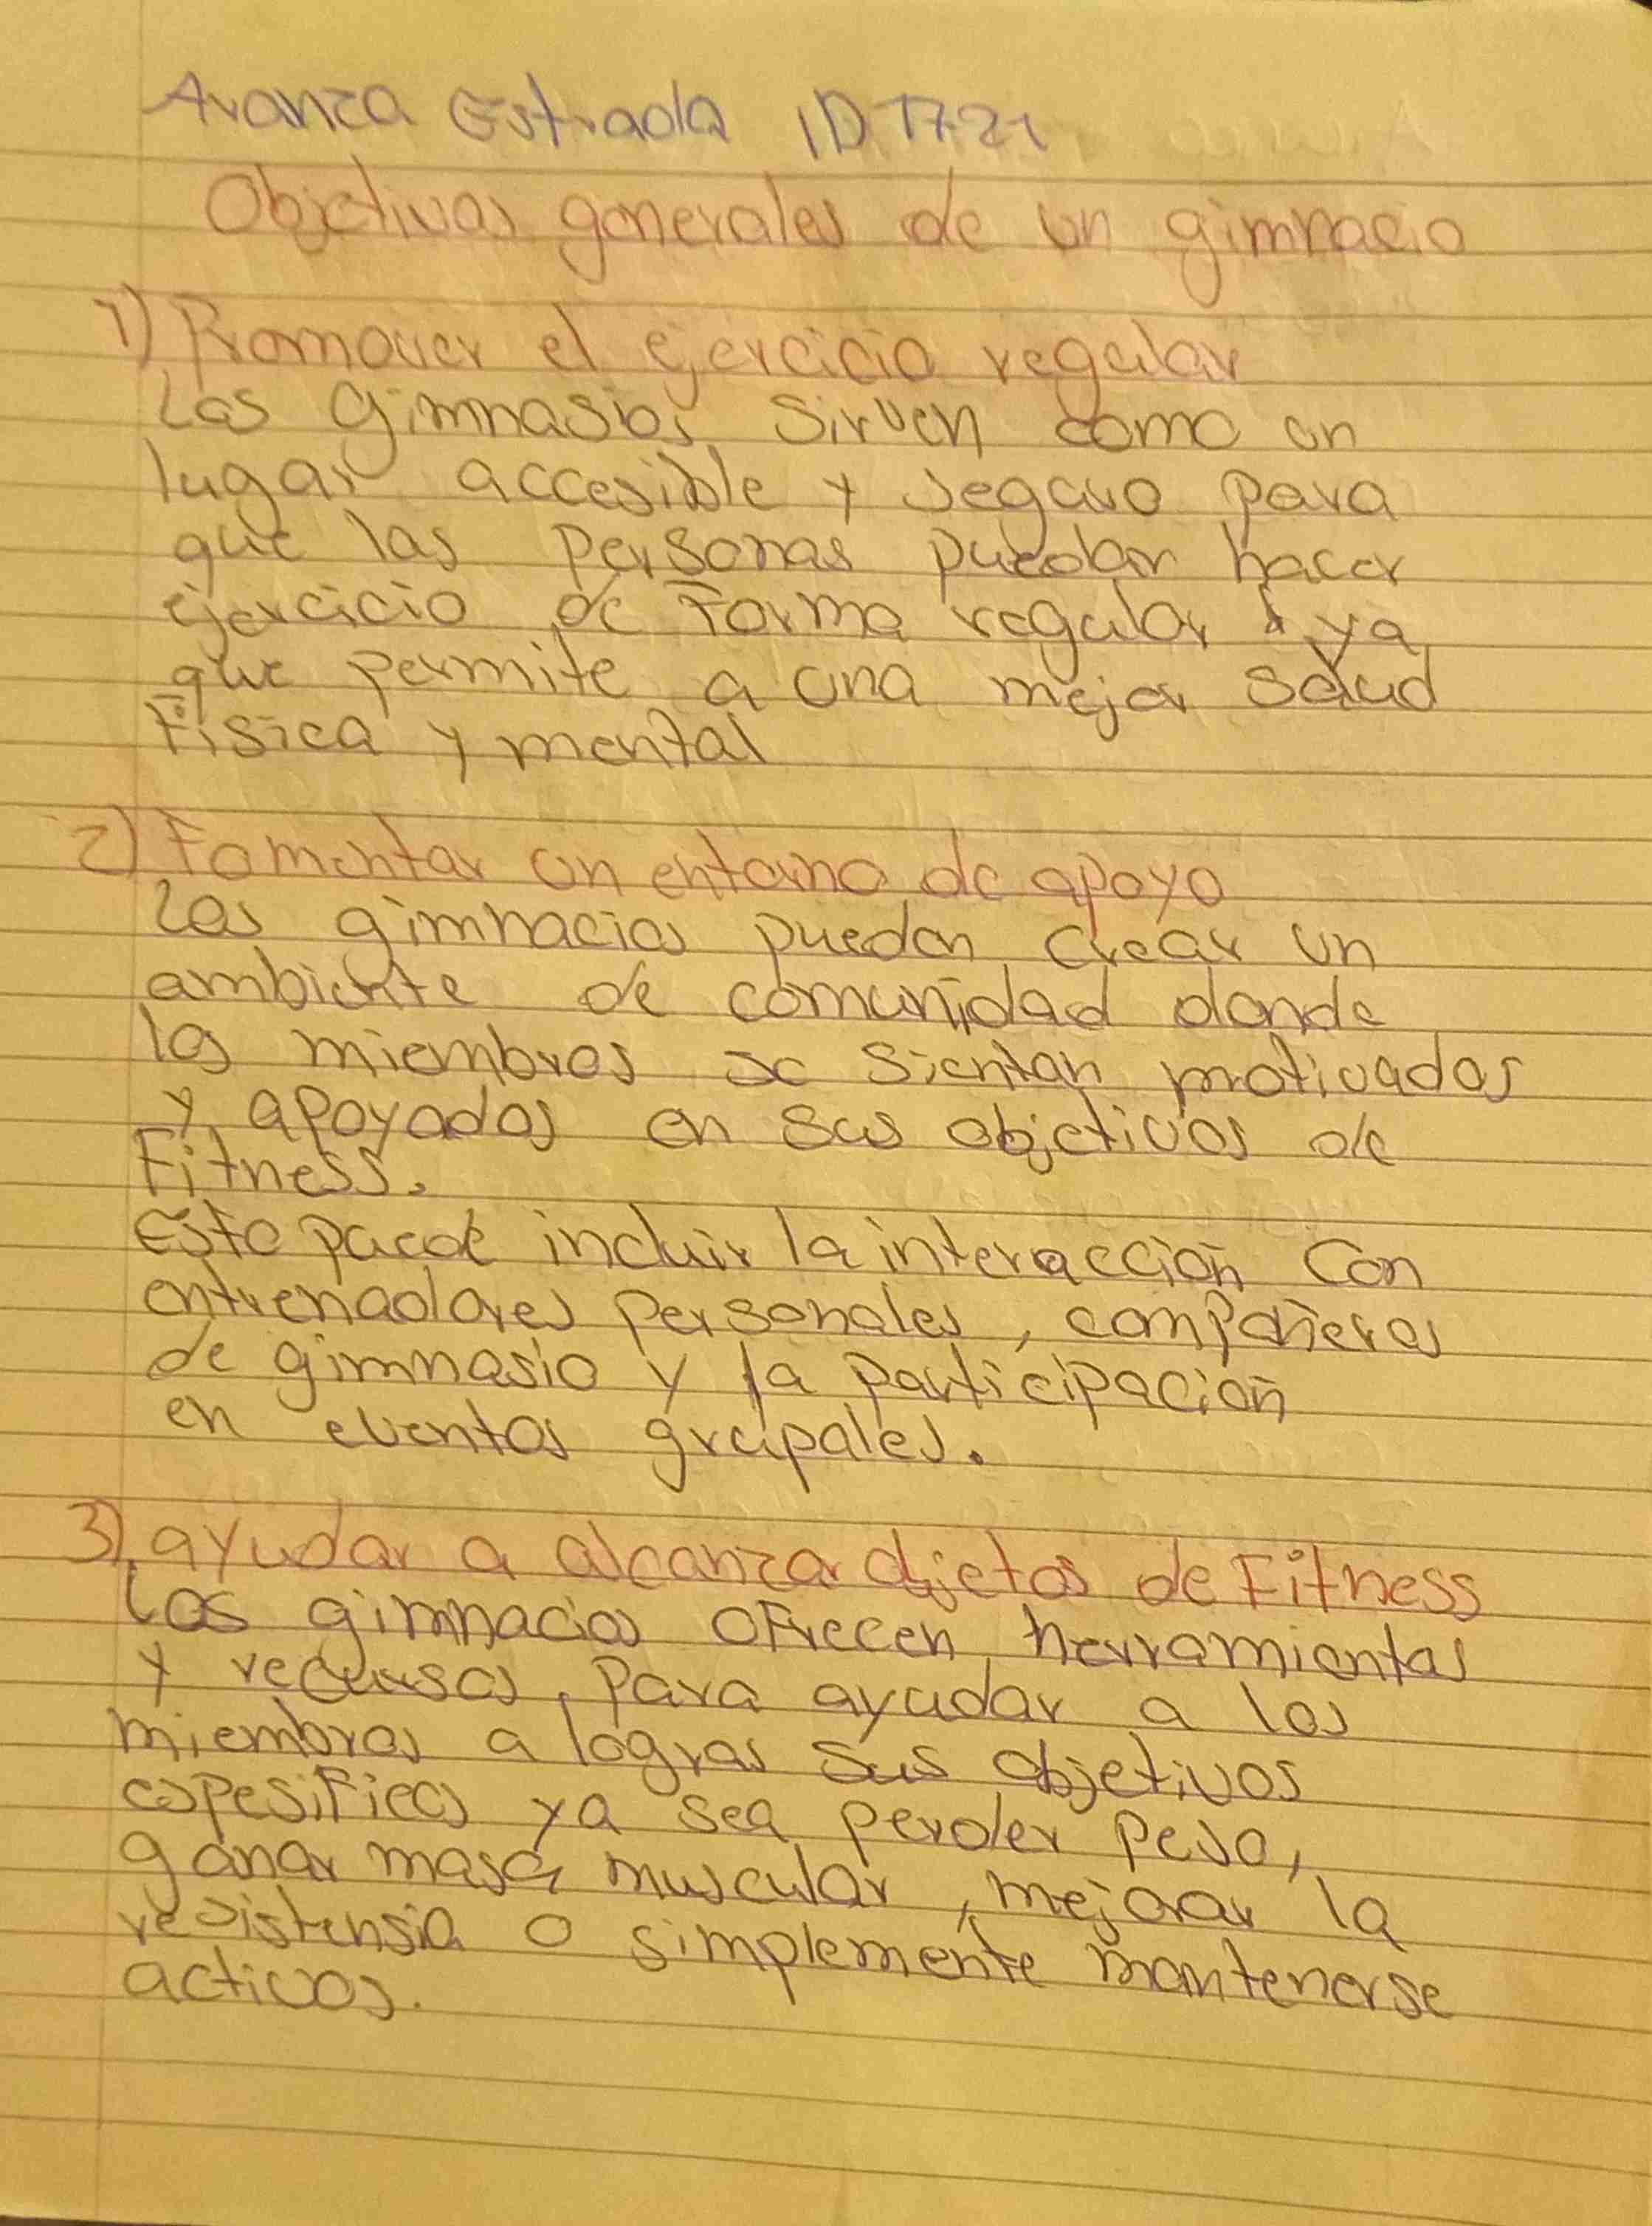 Avanza Estrada ID 1721
Objetivos generales de un gimnacio
1) Promover el ejercicio regular
Los gimnasios sirven como un
lugar accesible y seguro para
que las personas puedan hacer
ejercicio de forma regular ya
que permite a una mejor salud
física y mental
2) Fomentar un entorno de apoyo
Los gimnacios pueden crear un
ambiente de comunidad donde
los miembros se sientan motivados
y apoyados en sus objetivos de
Fitness.
Esto puede incluir la interacción con
entrenadores personales, compañeros
de gimnasio y la participación
en eventos grupales.
3) ayudar a alcanzar objetos de Fitness
Los gimnacios ofrecen herramientas
y recursos para ayudar a los
miembros a lograr sus objetivos
espesificos ya sea perder peso,
ganar masa muscular, mejorar la
resistensia o simplemente mantenerse
activos.